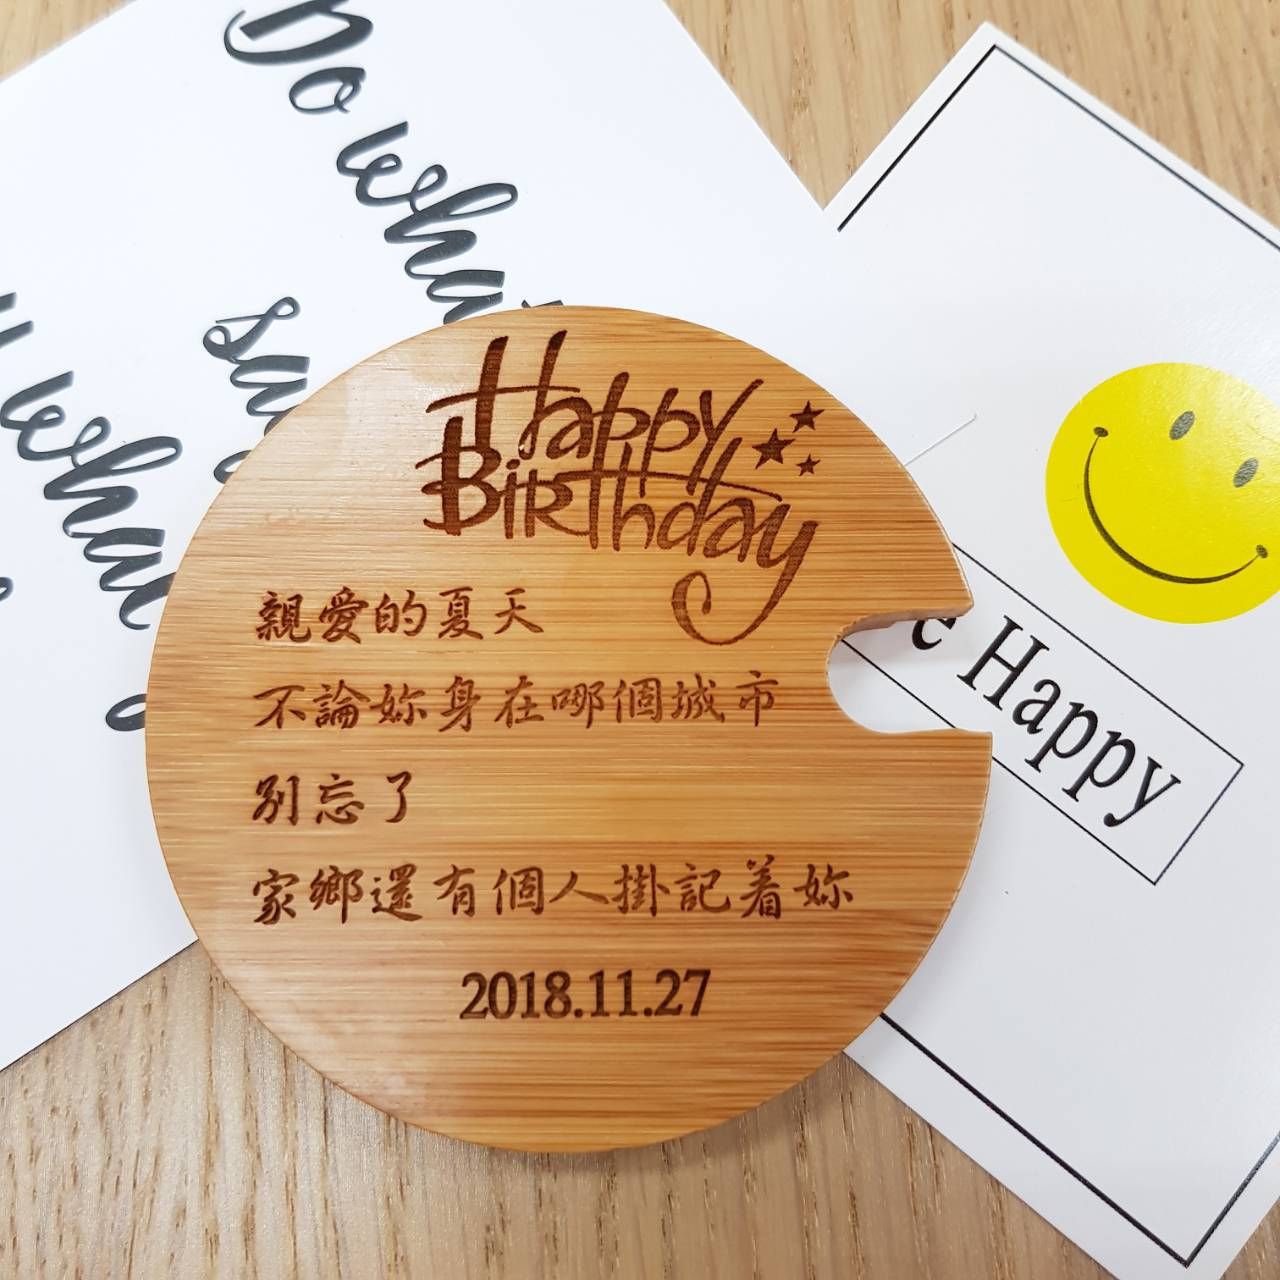 Do what
sa
what
Happy
Birthday
親愛的夏天
不論妳身在哪個城市
別忘了
家鄉還有個人掛記着妳
2018.11.27
e Happy